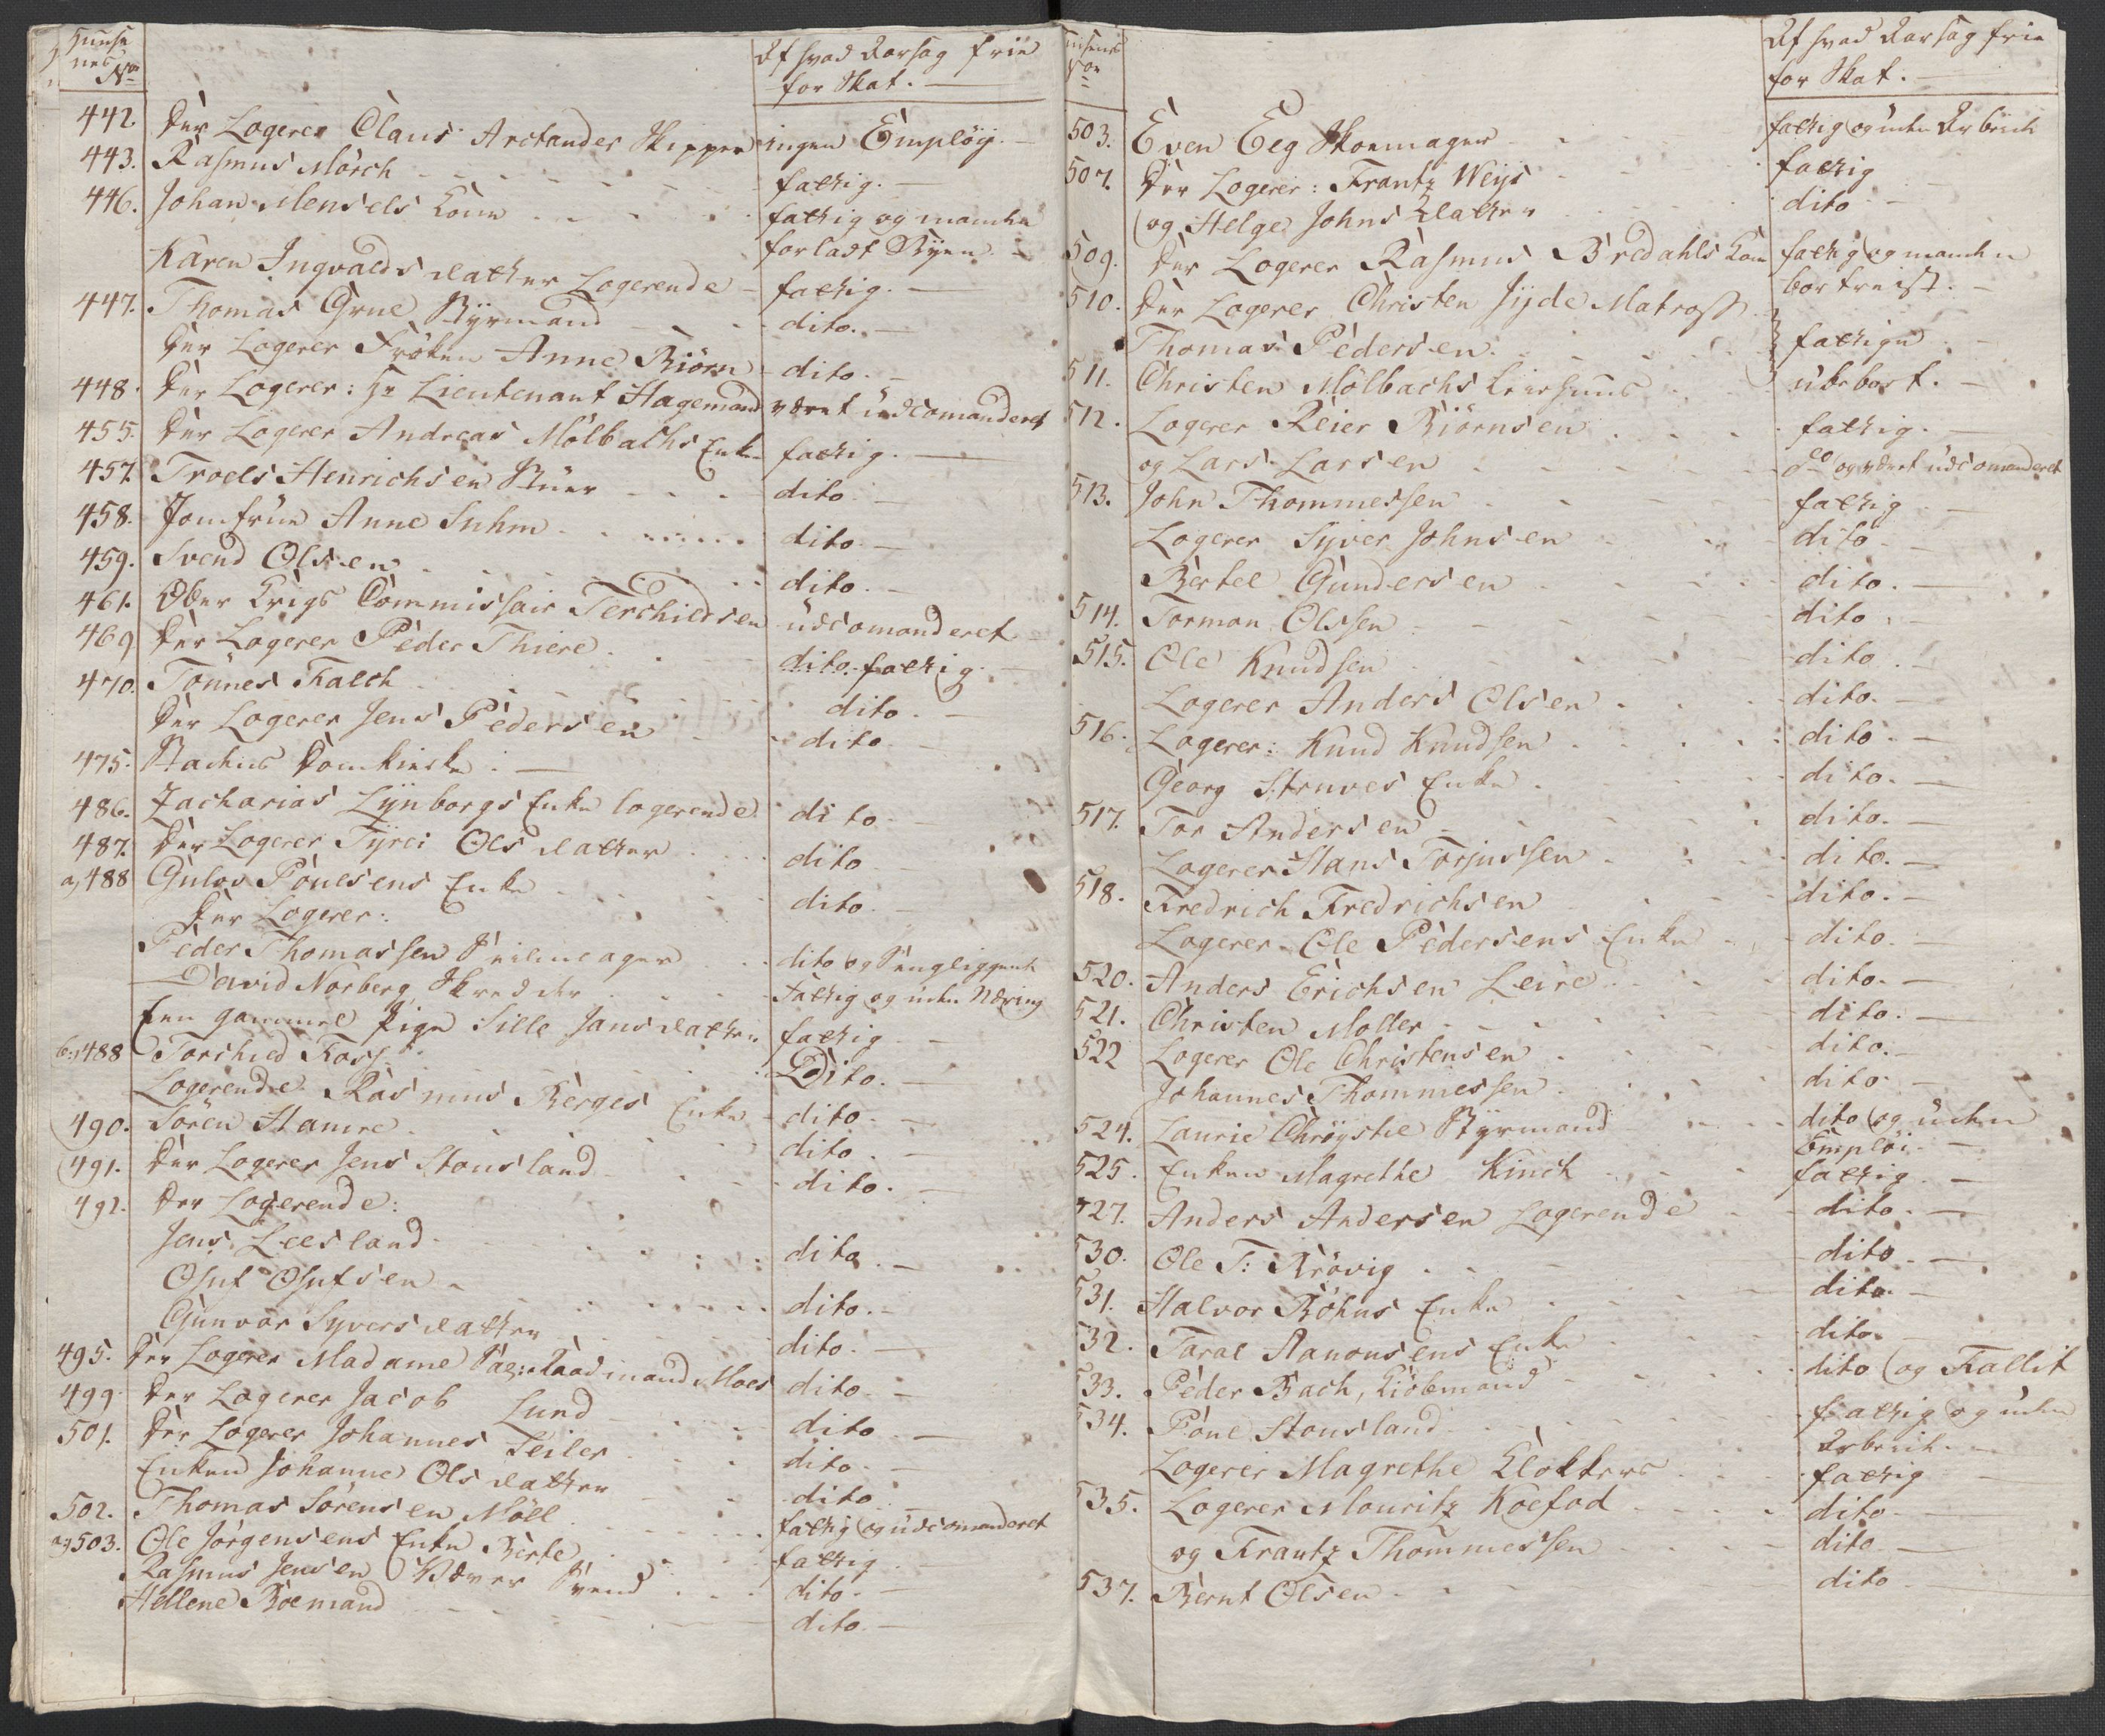 Huuse
nes
No
Af hvad Aarsag frie
for Skat.
442. Der Logerer Claus Arctander Skipper ingen Emplöy.
443. Rasmus Mörch fattig.
446. Johan Mensels Kone fattig og manden
forladt Byen
Karen Ingvalds datter Logerende fattig.
447. Thomas Grue Styrmand dito.
Der Logerer Fröken Anne Biörn dito.
448. Der Logerer: Hr Lieutenant Hagemand været udcomanderet
455. Der Logerer Andreas Mölbachs Enke fattig.
457. Troels Henrichsen dito
458. Jomfrue Anne Suhm dito.
459. Svend Olsen dito.
461. Ober Krigs Commissair Terchildsen udcomanderet
469 Der Logerer Peder Thiere dito. fattig.
470. Tönnes Falch dito.
Der Logerer Jens Pedersen dito
475. Domkirke
486. Zacharias Lynborgs Enke logerende dito
487. Der Logerer Tyrei Ols datter dito
a, 488 Gulov Povelsens Enke dito
Der Logerer:
Peder Thomassen Seilmager dito og Sengliggende
David Norberg Skredder Fattig og uden Næring
Een gammel Pige Sille Jans datter fattig
b, 488 Torchied Foss Dito.
Logerende Rasmus Berges Enke dito.
490. Sören Hamre dito.
491. Der Logerer Jens Stousland dito.
492. Der Logerende:
Jens Leesland dito.
Oluf Olufsen dito.
Gunvor Syvers datter dito.
495. Der Logerer Madame Raadmand Moes dito.
499. Der Logerer Jacob Lund dito
501. Der Logerer Johannes Seiler dito.
Enken Johanne Ols datter dito
502. Thomas Sörensen Möll fattig og udcomanderet
a, 503. Ole Jörgensens Enke Berte fattig
Rasmus Jensen Væver Svend dito.
Hellene Boemand dito.
Af hvad Aarsag frie
for Skat.
503. Even Eeg Skoemager fattig og uden Arbeide
507. Der Logerer: Frantz Weys fattig
og Helge Johns datter dito
509. Der Logerer Rasmus Bredahls Kone fattig og manden
bortreist.
510. Der Logerer Christen Jyde Matross
Thomas Pedersen fattige
511. Christen Mölbachs Leiehuus ubeboet.
512. Logerer Reier Biörnsen fattig.
og Lars Larsen do og været udcomanderet
513. John Thommessen fattig
Logerer Syver Johnsen dito
Bertel Gundersen dito.
514. Tormon Olssen dito
515. Ole Knudsen dito
Logerer Anders Olsen dito.
516. Logerer: Knud Knudsen dito.
Georg Struves Enke dito.
517. Tor Andersen dito.
Logerer Hans Torjussen dito.
518. Fredrich Fredrichsen dito.
Logerer Ole Pedersens Enke dito.
520. Anders Erichsen Leire dito.
521. Christen Moller dito.
522 Logerer Ole Christensen dito.
Johannes Thommessen dito
524. Laurie Chröystie Styrmand dito og uden
Emplöi.
525. Enken Magrethe Kinck fattig
527. Anders Andersen Logerende dito.
530. Ole T: Brövig dito
531. Halvor Böhns Enke dito
532. Taral Aanonsens Enke dito.
533. Peder Bach, Kiöbmand dito og Fallit
534. Povel Stousland fattig og uden
Arbeide.
Logerer Magrethe Klokkers fattig
535. Logerer Mouritz Koefod dito
og Frantz Thommessen dito
537. Bernt Olsen dito